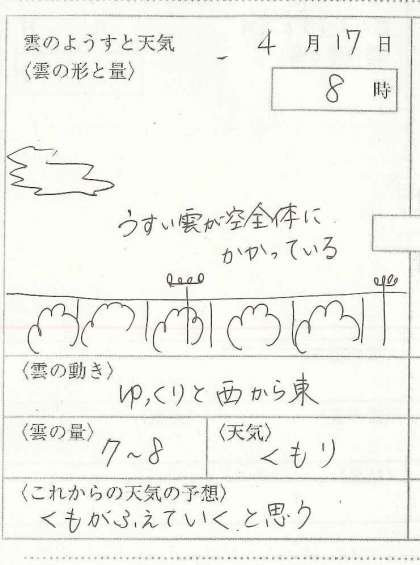 雲のようすと天気
4月17日
〈雲の形と量〉
8時
うすい雲が空全体に
かかっている
〈雲の動き〉
ゆっくりと西から東
〈雲の量〉
7～8
〈天気〉
くもり
〈これからの天気の予想〉
くもがふえていくと思う